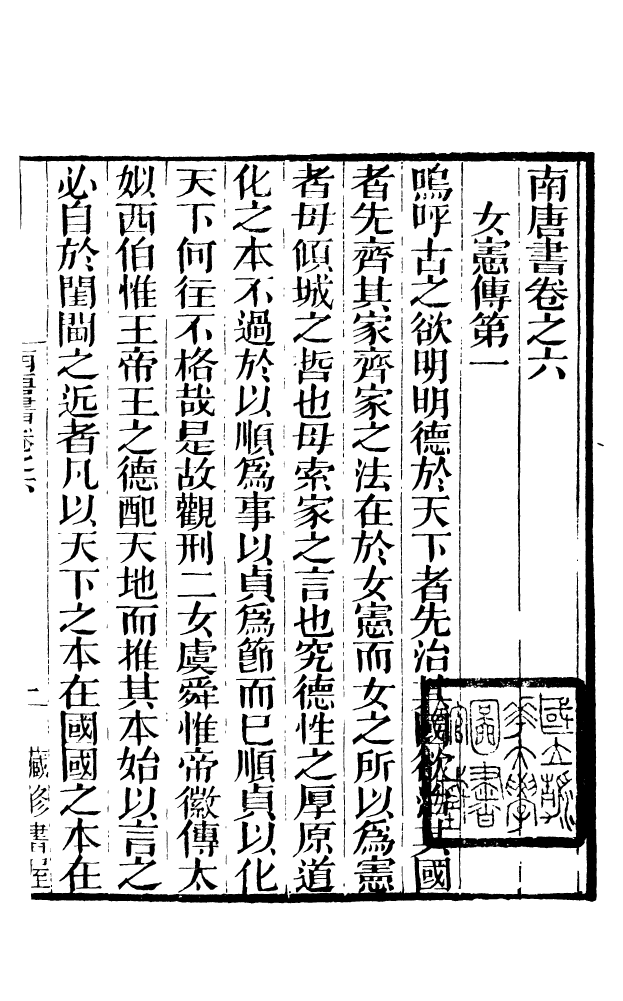 南唐書卷之六
女憲傳第一
嗚呼古之欲明明德於天下者先治其國欲治其國
者先齊其家齊家之法在於女憲而女之所以爲憲
者毋傾城之哲也毋索家之言也究德性之厚原道
化之本不過於以順爲事以貞爲節而已順貞以化
天下何往不格哉是故觀刑二女虞舜惟帝徽傳太
姒西伯惟王帝王之德配天地而推其本始以言之
必自於閨閫之近者凡以天下之本在國國之本在
南唐書卷之六
二
藏修書屋
國立清
華大學
圖書